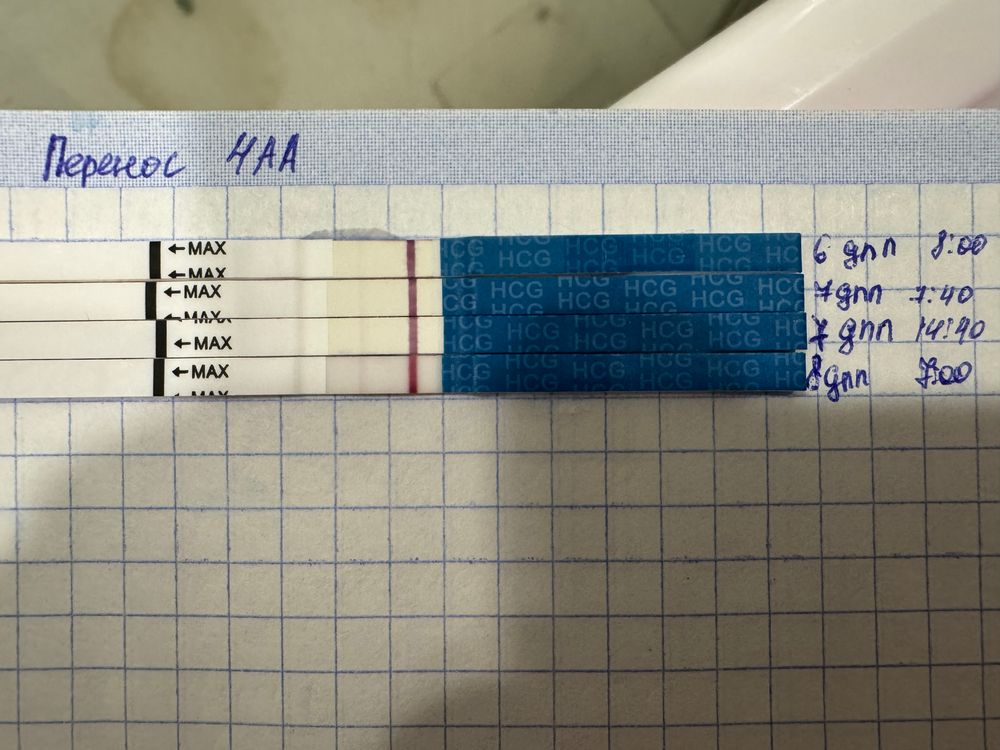 Перенос 4АА
←MAX HCG HCG HCG HCG HCG HCG 6 дпп 8:00
←MAX
←MAX HCG HCG HCG HCG HCG HCG 7дпп 7:40
←MAX HCG HCG HCG HCG HCG HCG 7 дпп 14:40
←MAX HCG HCG HCG HCG HCG HCG 8дпп 7:00